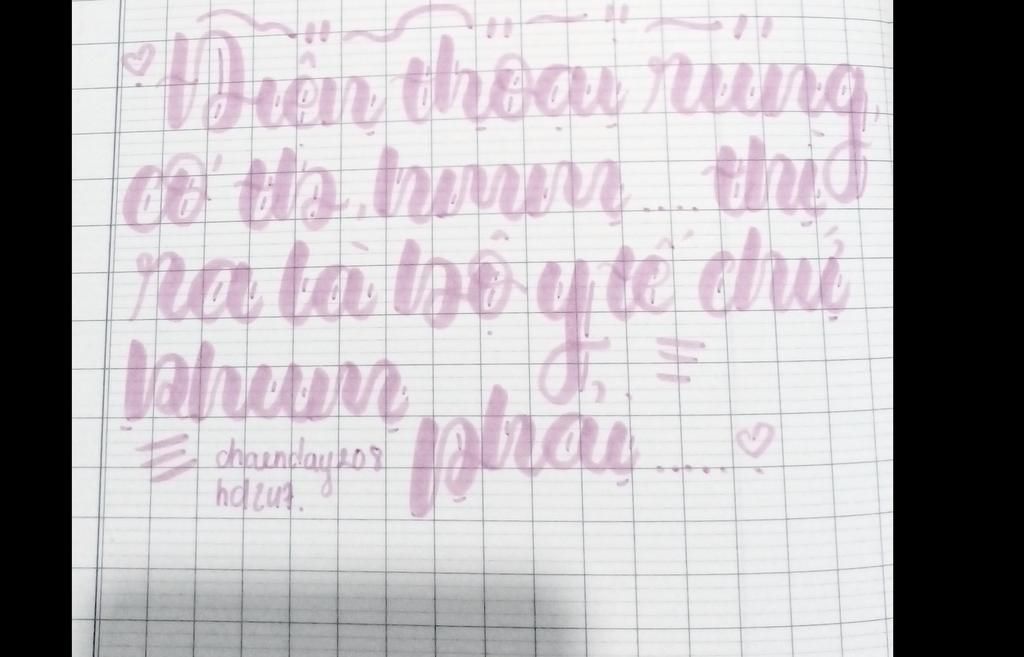 Điện thoại rung,
cứ tb, hmmm.... thì
ra là bộ y tế chứ
khum phải.....
chaenday208
hd247.